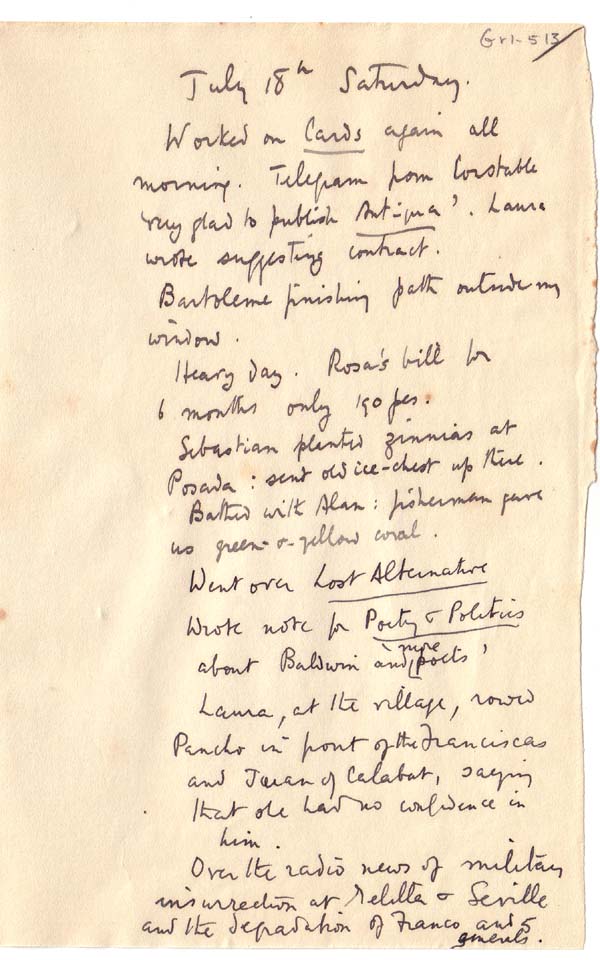 Gr1-513
July 18th Saturday.
Worked on Cards again all
morning. Telegram from Constable
'very glad to publish Antigua'. Laura
wrote suggesting contract.
Bartoleme finishing path outside my
window.
Heavy day. Rosa's bill for
6 months only 190 pes.
Sebastian planted zinnias at
Posada: sent old ice-chest up there.
Bathed with Alan: fisherman gave
us green-&-yellow coral.
Went over Lost Alternative
Wrote note for Poetry & Politics
about Baldwin 'and more poets'
Laura, at the village, rowed
Pancho in front of the Franciscas
and Juan of Calabat, saying
that she had no confidence in
him.
Over the radio news of military
insurrection at Melilla & Seville
and the degradation of Franco and 5
generals.